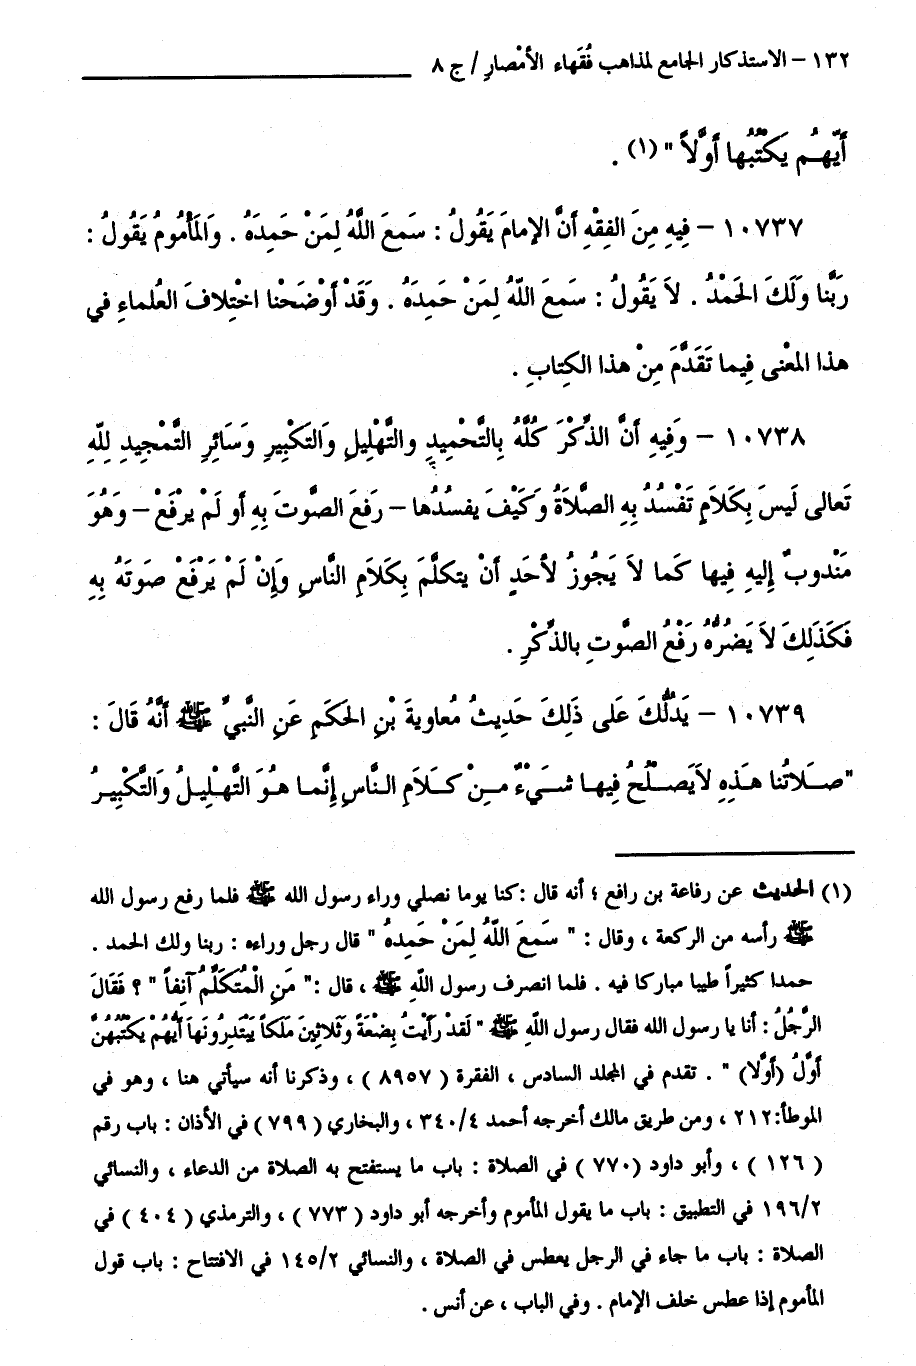 ١٣٢ – الاستذكار الجامع لمذاهب فُقَهاء الأمْصارِ / ج ٨
أَيّهُم يَكْتُبُها أوَّلاً " (١) .
١٠٧٣٧ – فِيهِ مِنَ الفِقْهِ أنَّ الإمامَ يَقُولُ : سَمعَ اللَّهُ لِمَنْ حَمِدَهُ . وَالمَأمُومُ يَقُولُ :
رَبَّنا وَلَكَ الحَمْدُ . لاَ يَقُولُ : سَمعَ اللَّهُ لِمَنْ حَمِدَهُ . وَقَدْ أوْضَحْنا اخْتِلافَ العُلماءِ في
هذا المعْنى فِيما تَقَدَّمَ مِنْ هذا الكِتابِ .
١٠٧٣٨ – وَفِيهِ أنَّ الذِّكْرَ كُلَّهُ بِالتَّحْمِيدِ والتَّهْلِيلِ وَالتَكْبِيرِ وَسَائِرِ التَّمْجِيدِ لِلّهِ
تَعالى لَيسَ بِكَلاَمٍ تَفْسُدُ بِهِ الصَّلاَةُ وَكَيْفَ يفسُدُها – رَفعَ الصوَّتَ بِهِ أو لَمْ يرْفَعْ – وَهُوَ
مَنْدوبٌ إِليهِ فِيها كَما لاَ يَجُوزُ لأحَدٍ أنْ يتكلَّمَ بِكَلاَمِ النَّاسِ وَإِنْ لَمْ يَرْفَعْ صوَتَهُ بِهِ
فَكَذَلِكَ لاَ يَضُرُّهُ رَفْعُ الصَّوتِ بالذِّكْرِ .
١٠٧٣٩ – يَدُلُّكَ عَلى ذَلِكَ حَدِيثُ مُعاوِيةَ بْنِ الحَكَمِ عَنِ النَّبيِّ ﷺ أنَّهُ قَالَ :
"صَلاَتُنا هَذِهِ لاَيَصْلُحُ فِيها شَيْءٌ مِنْ كَلاَمِ النَّاسِ إِنَّما هُوَ التَّهْلِيلُ وَالتَّكْبِيرُ
(١) الحديث عن رفاعة بن رافع ؛ أنه قال :كنا يوما نصلي وراء رسول الله ﷺ فلما رفع رسول الله
ﷺ رأسه من الركعة ، وقال : " سَمعَ اللَّهُ لِمَنْ حَمِدهُ " قال رجل وراءه : ربنا ولك الحمد .
حمدا كثيراً طيبا مباركا فيه . فلما انصرف رسول اللّهِ ﷺ ، قال :" مَنِ الْمُتَكَلِّمُ آنِفاً " ؟ فَقَالَ
الرَّجُلُ : أنا يا رسول الله فقال رسول اللّهِ ﷺ " لَقَدْ رَأيْتُ بِضْعَةً وَثَلاثِينَ مَلَكاً يَبْتَدِرُونَها أَيُّهُمْ يَكْتُبُهُنَّ
أوَّلُ (أوَّلا) " . تقدم في المجلد السادس ، الفقرة ( ٨٩٥٧ ) ، وذكرنا أنه سيأتي هنا ، وهو في
الموطأ:٢١٢ ، ومن طريق مالك أخرجه أحمد ٣٤٠/٤ ، والبخاري ( ٧٩٩ ) في الأذان : باب رقم
( ١٢٦ ) ، وأبو داود ( ٧٧٠ ) في الصلاة : باب ما يستفتح به الصلاة من الدعاء ، والنسائي
١٩٦/٢ في التطبيق : باب ما يقول المأموم وأخرجه أبو داود ( ٧٧٣ ) ، والترمذي ( ٤٠٤ ) في
الصلاة : باب ما جاء في الرجل يعطس في الصلاة ، والنسائي ١٤٥/٢ في الافتتاح : باب قول
المأموم إذا عطس خلف الإمام . وفي الباب ، عن أنس .